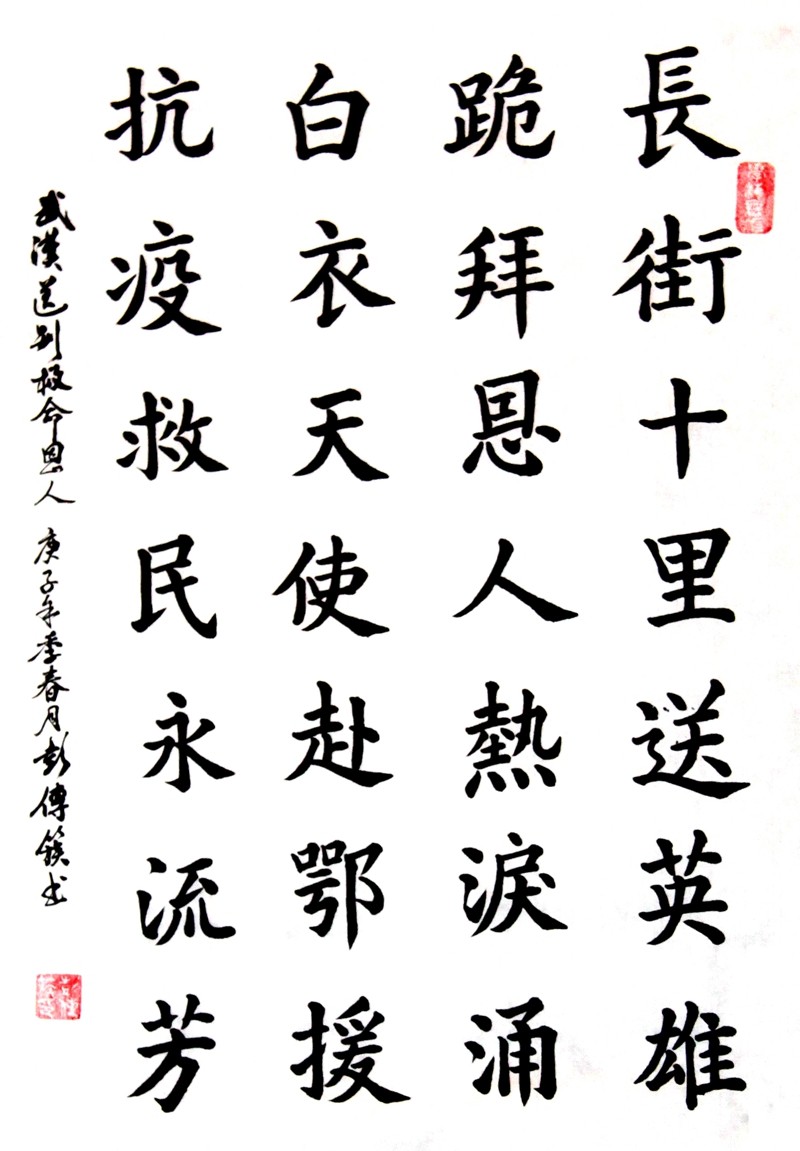 長街十里送英雄
跪拜恩人熱淚涌
白衣天使赴鄂援
抗疫救民永流芳
武漢送别救命恩人 庚子年季春月彭傳簇书